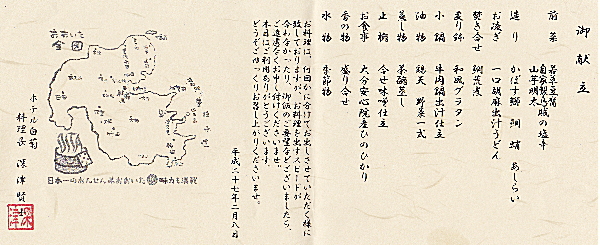 御献立
前菜 若菜豆腐
自家製烏賊の塩辛
山芋明太
造り かぼす鰤 鯛 蛸 あしらい
お凌ぎ 一口胡麻出汁うどん
焚き合せ 鯛荒煮
炙り鉢 和風グラタン
小鍋 牛肉鍋出汁仕立
油物 鶏天 野菜一式
蒸し物 茶碗蒸し
止椀 合せ味噌仕立
お食事 大分安心院産ひのひかり
香の物 盛り合せ
水物 季節物
お料理は、十回に分けてお出しさせていただく様に
致しておりますが、お料理を出すスピードが
合わなかったり、御飯のご要望などございましたら、
ご遠慮なくお申し付けくださいませ。
本日はご利用ありがとうございます。
どうぞごゆっくりお召し上がりくださいませ。
平成二十七年二月八日
おおいた
全図
日本一のおんせん県おおいた 味力も満載
ホテル白菊
料理長 深津賢